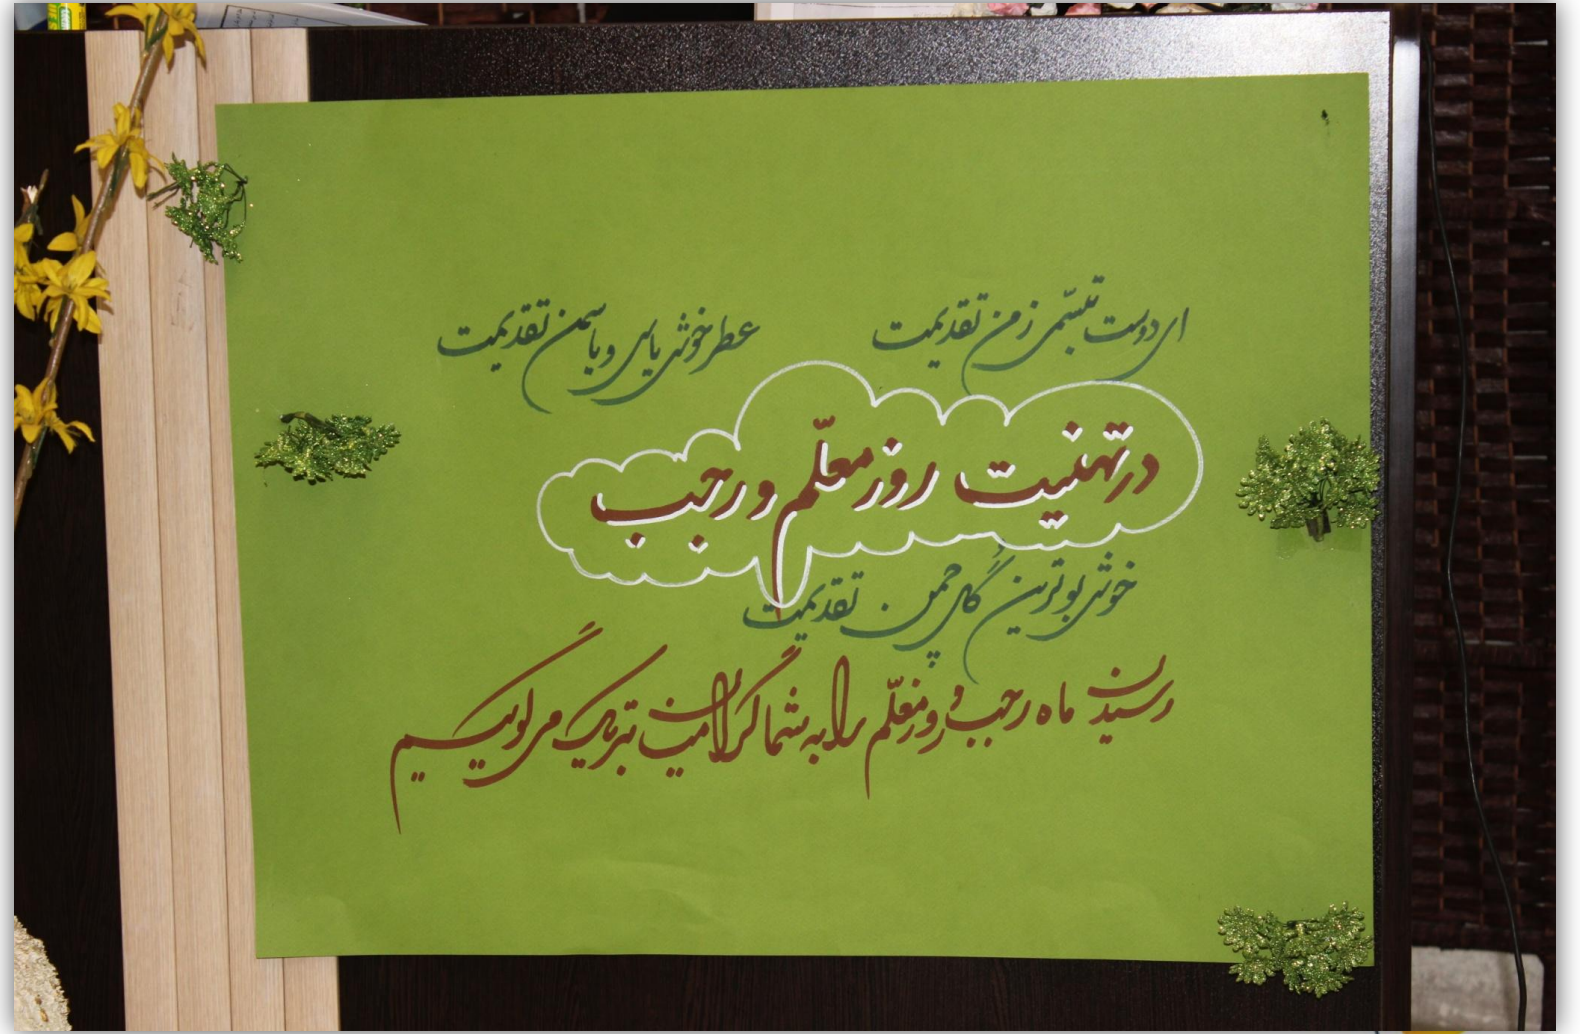 ای دوست تبسّمی ز من تقدیمت عطر خوش یاس و یاسمن تقدیمت
در تهنیت روز معلّم و رجب
خوش بوترین گلهای چمن تقدیمت
رسیدن ماه رجب و روز معلّم را به شما گرامیان تبریک می گوییم